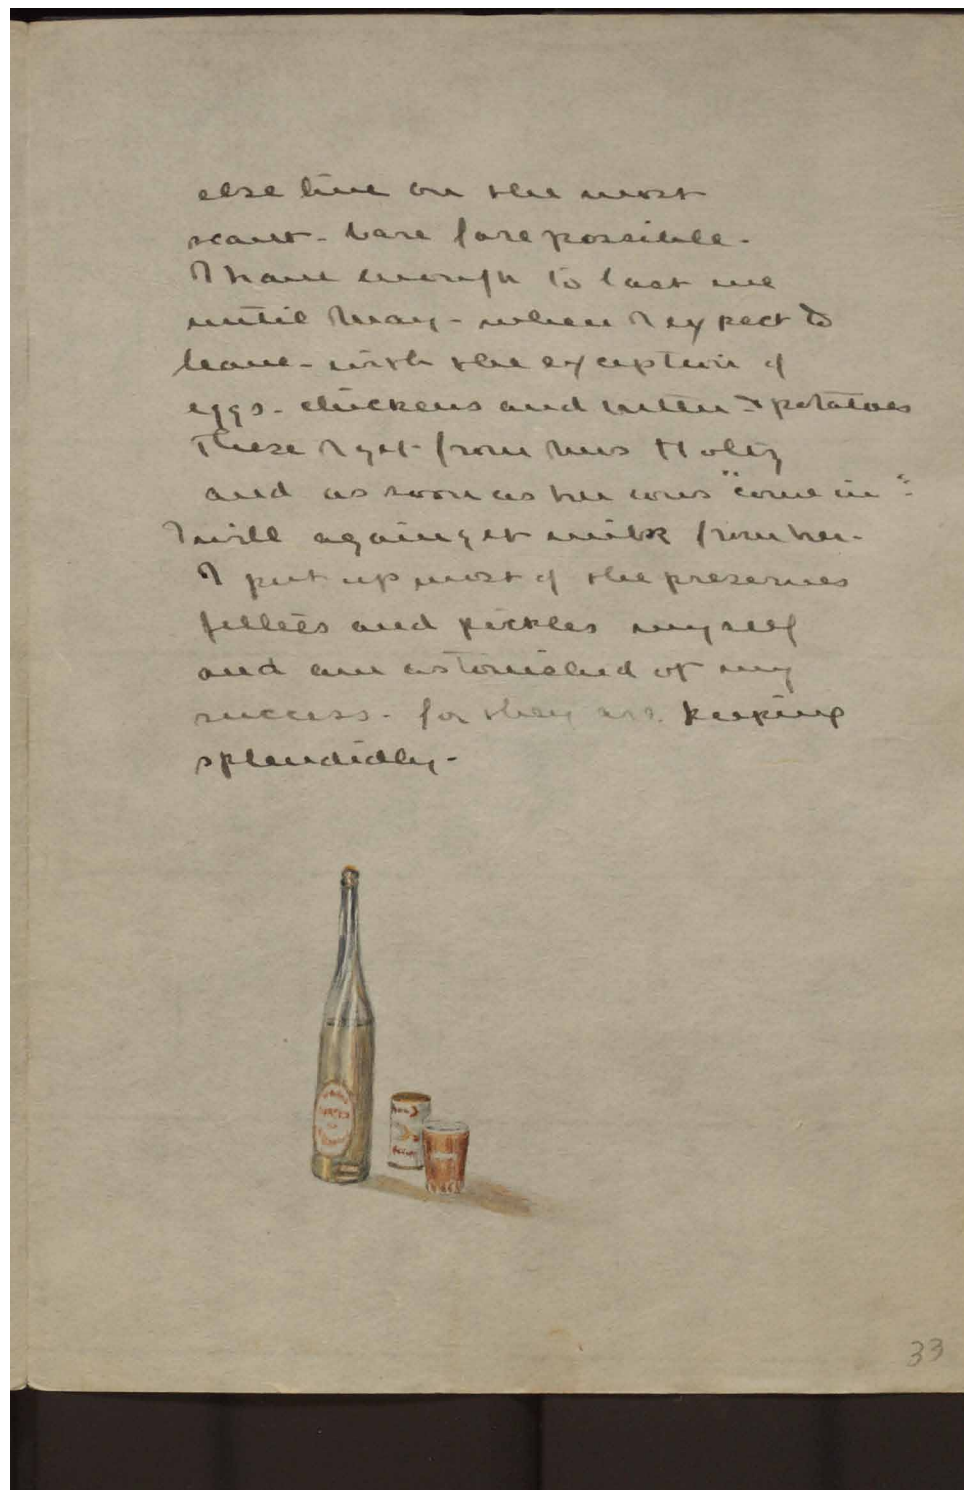 else live on the most
scant - bare fare possible -
I have enough to last me
until May - when I expect to
leave - with the exception of
eggs - chickens and butter & potatoes
These I get from Mrs Holtz
and as soon as her cows "come in" -
I will again get milk from her -
I put up most of the preserves
jellies and pickles myself
and am astonished at my
success - for they are keeping
splendidly -
33